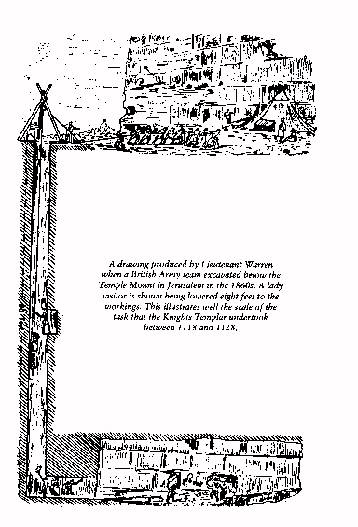 A drawing produced by Lieutenant Warren
when a British Army team excavated below the
Temple Mount in Jerusalem in the 1860s. A lady
visitor is shown being lowered eight feet to the
workings. This illustrates well the scale of the
task that the Knights Templar undertook
between 1118 and 1128.